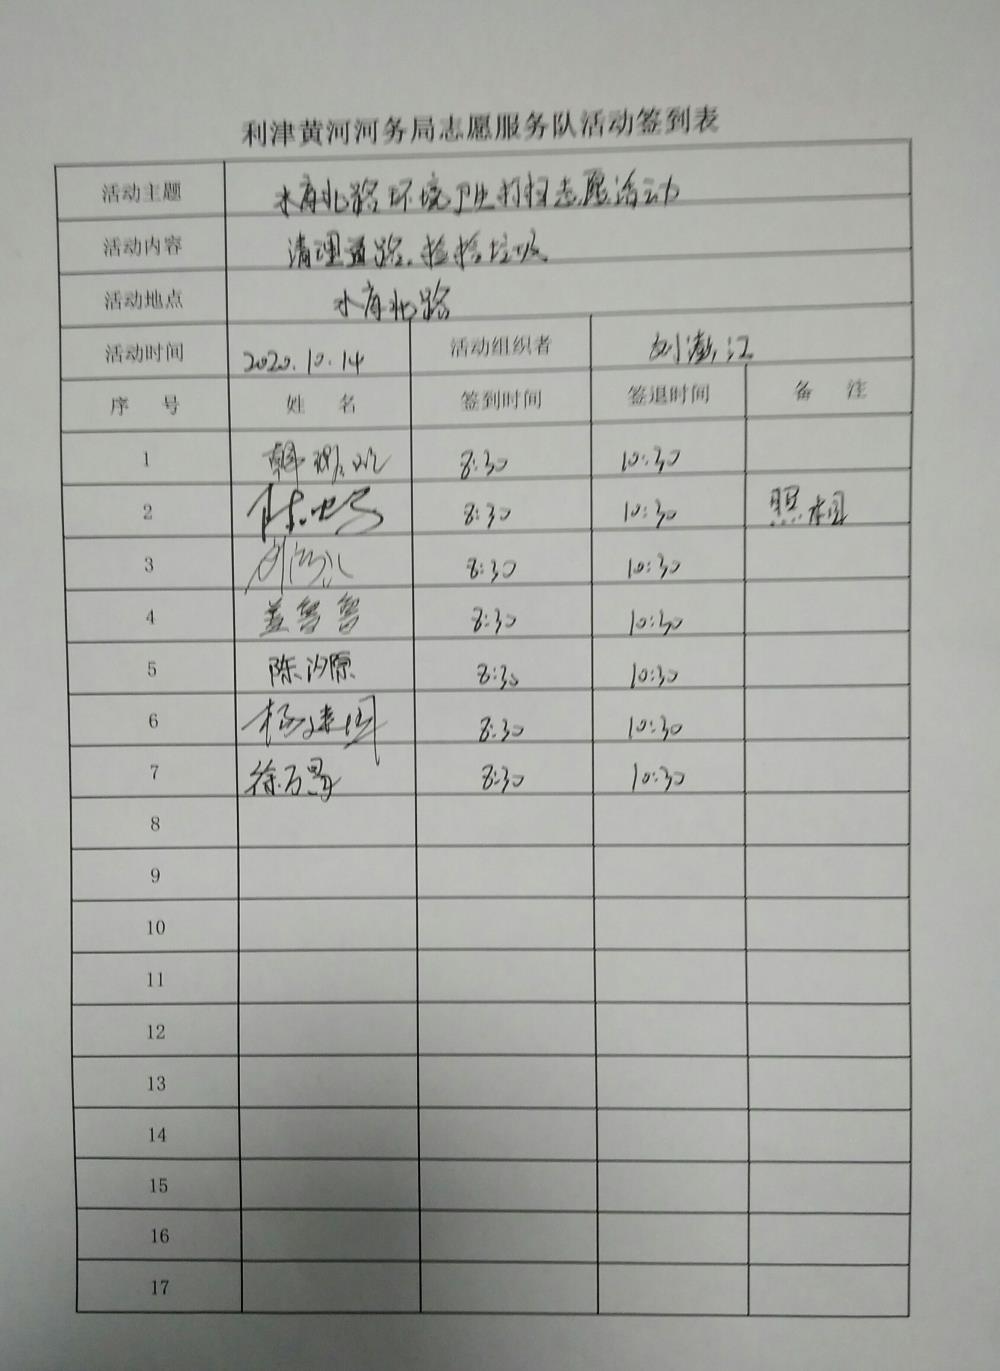 利津黄河河务局志愿服务队活动签到表
活动主题 北路环境卫生打扫志愿活动
活动内容 清理道路、捡拾垃圾
活动地点 北路
活动时间 2020.10.14 活动组织者 刘澎江
序 号 姓 名 签到时间 签退时间 备 注
1 韩 8:30 10:30
2 陈 8:30 10:30 照相
3 刘 8:30 10:30
4 盖鲁鲁 8:30 10:30
5 陈汐原 8:30 10:30
6 杨建国 8:30 10:30
7 徐万 8:30 10:30
8
9
10
11
12
13
14
15
16
17